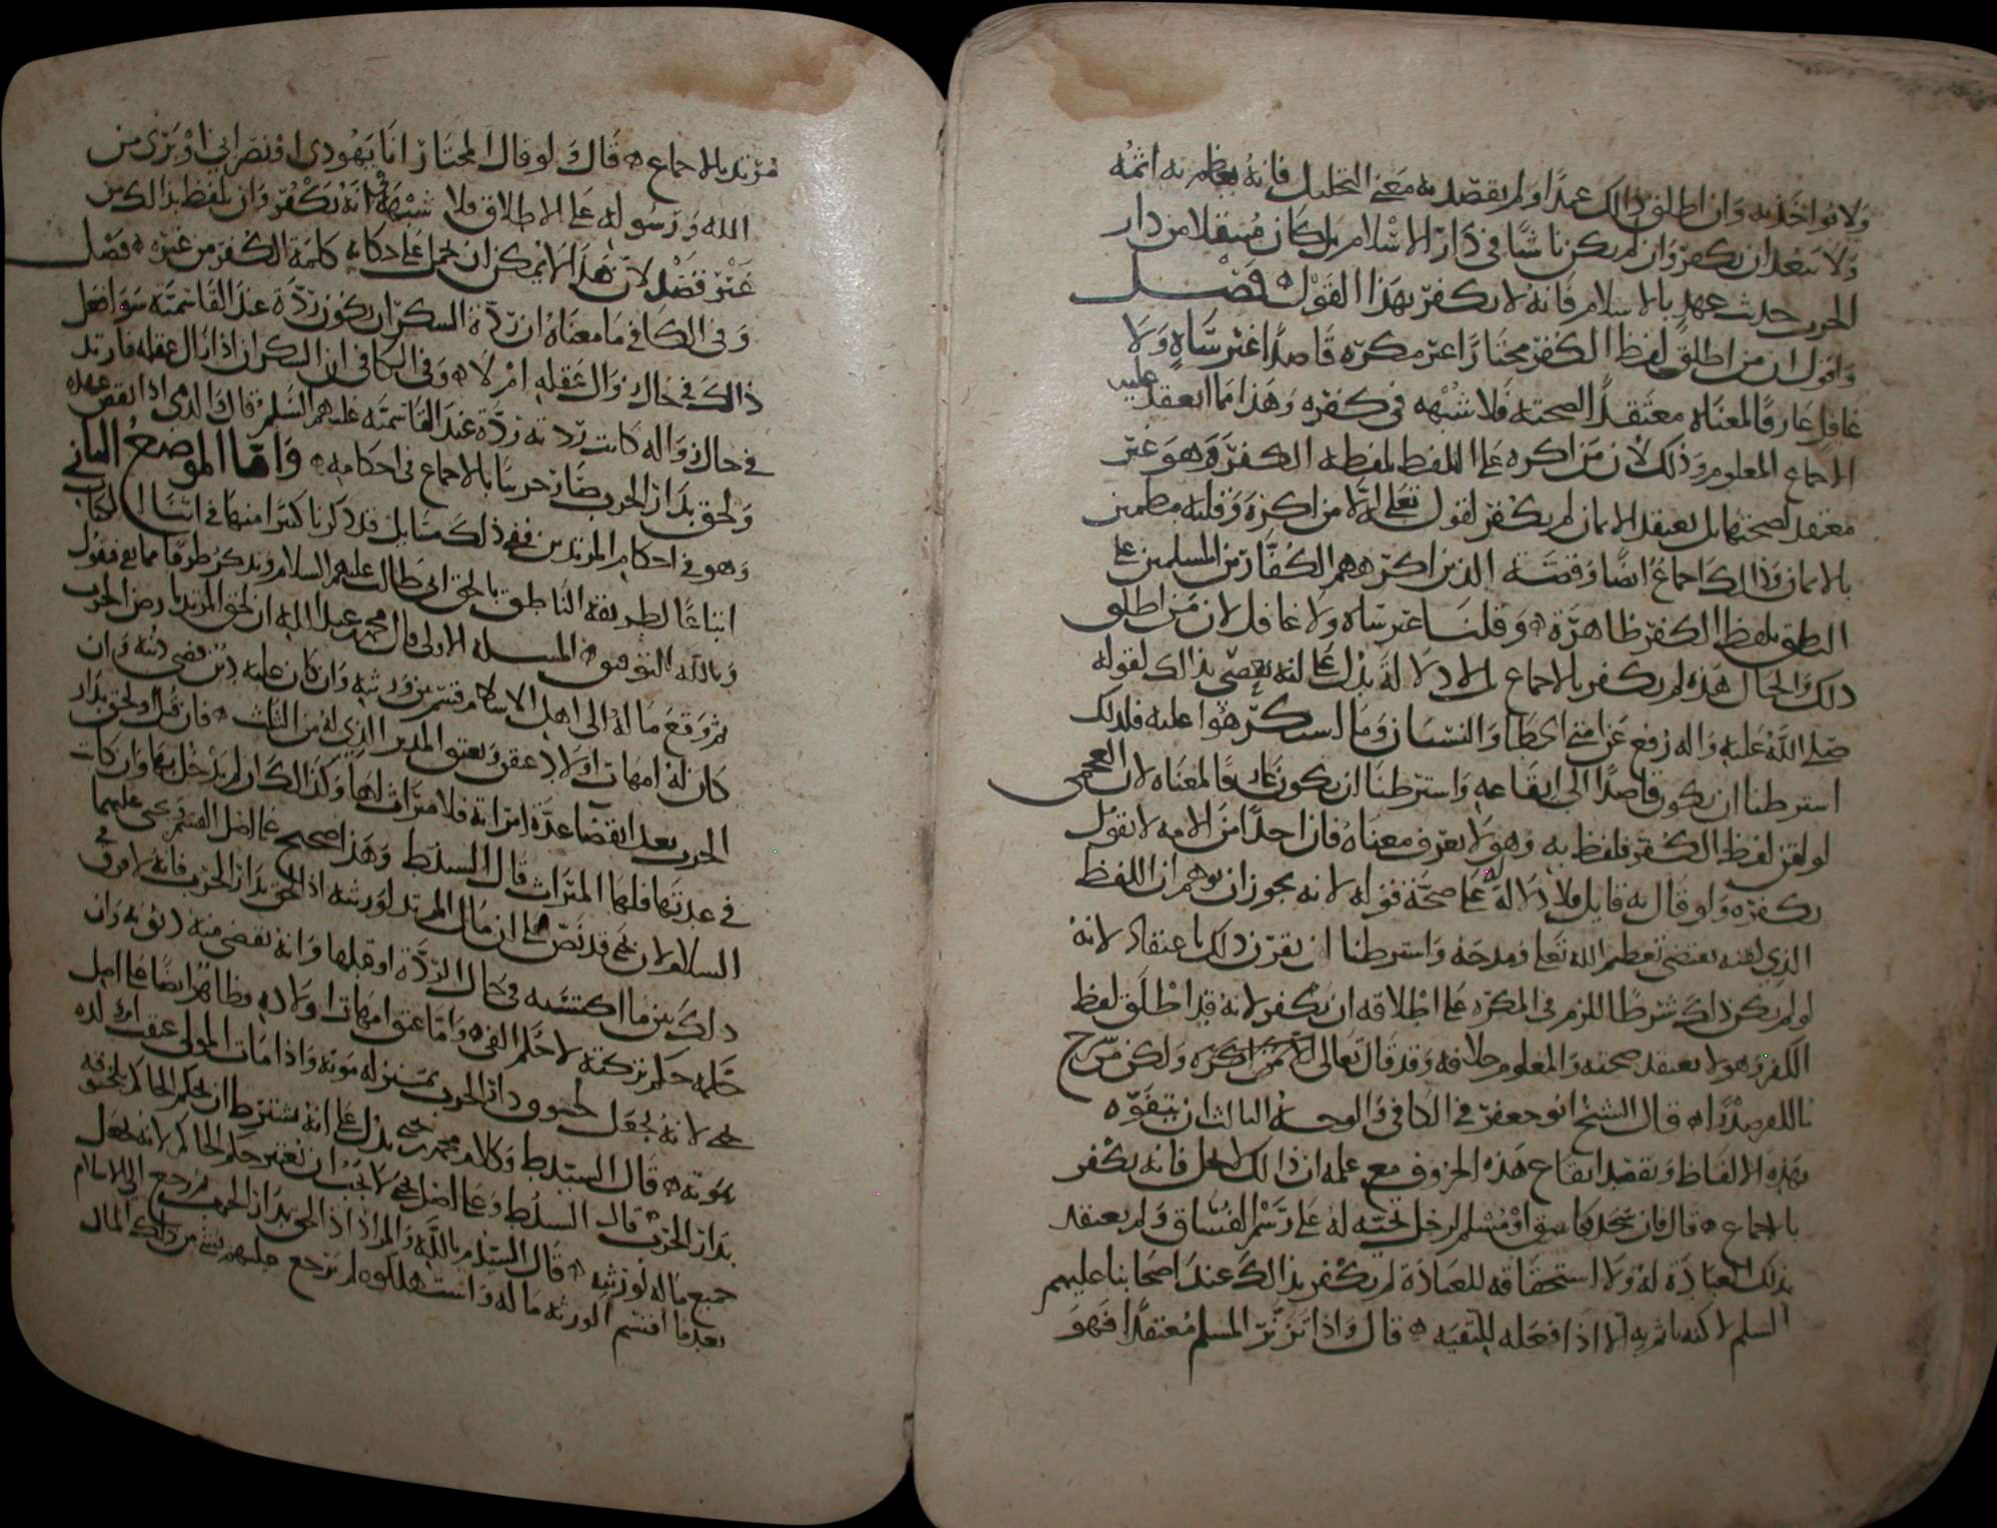 ولا يواخذ به وان اطلق ذالك عمدا ولم يقصد به معنى التحليل فانه يعظم به اثمه
ولا يبعد ان يكفر وان لم يكن ناشا في دار الاسلام بل كان منتقلا من دار
الحرب حديث عهد بالاسلام فانه لا يكفر بهذا القول فصل
واقول ان من اطلق لفظ الكفر مختارا غير مكره قاصدا غير ساه ولا
غافل عارفا لمعناه معتقدا لصحته فلا شبهه في كفره وهذا مما انعقد عليه
الاجماع المعلوم وذلك لان من اكره على اللفظ بلفظه الكفر وهو غير
معتقد لصحتها بل يعتقد الايمان لم يكفر لقوله تعلى الا من اكره وقلبه مطمين
بالايمان وذالك اجماع ايضا وقصة الذين اكرههم الكفار من المسلمين على
النطق بلفظ الكفر ظاهرة وقلنا غير ساه ولا غافل لان من اطلق
ذلك والحال هذه لم يكفر بالاجماع بلا دلالة تدل على انه يعصي بذالك لقوله
صلى الله عليه واله رفع عن امتي الخطا والنسيان وما استكرهوا عليه فلذلك
اشترطنا ان يكون قاصدا الى ايقاعه واشترطنا ان يكون عارفا لمعناه لان العجمي
لو لقن لفظ الكفر فلفظ به وهو لا يعرف معناه فان احدا من الامه لا يقول
بكفره ولو قال به قايل فلا دلالة له على صحة قوله لانه يجوز ان يوهم ان اللفظ
الذي لقنه يقتضي تعظيم الله تعلى ومدحه واشترطنا ان يقرن ذلك باعتقاد لانه
لو لم يكن ذاك شرطا للزم في المكره على اطلاقه ان يكفر لانه قد اطلق لفظ
الكفر وهو لا يعتقد صحته والمعلوم خلافه وقد قال تعالى ولكن من شرح
بالكفر صدرا قال الشيخ ابو جعفر في الكافي والوجه الثالث ان يتفوه
بهذه الالفاظ ويقصد ايقاع هذه الحروف مع علمه ان ذالك لا يحل فانه يكفر
بالاجماع قال فان سجد فاسق او مسلم لرجل تحيته له على رسم الفساق ولم يعتقد
بذلك العبادة له ولا استحقاقه للعبادة لم يكفر بذالك عند اصحابنا عليهم
السلم لاكنه ياثم به الا اذا فعله للتقيه قال واذا تزنر المسلم معتقدا فهو
مرتد بالاجماع قال ولو قال المختار انا يهودي او نصراني او بري من
الله ورسوله على الاطلاق فلا شبهة في انه يكفر وان تلفظ بذالك من
غير قصد لان هذا لا يمكن ان يحمل على حكايه كلمة الكفر من غيره فصل
وفي الكافي ما معناه ان ردة السكران يكون ردة عند القاسمية سوا فعل
ذالك في حال زوال عقله ام لا وفي الكافي ان السكران اذا زال عقله فارتد
في حال زواله كانت ردته ردة عند القاسمية عليهم السلم قال الذمي اذا نقض عهده
ولحق بدار الحرب صار حربيا بالاجماع في احكامه واما الموضع الثاني
وهو في احكام المرتدين ففي ذلك مسايل قد ذكرنا كثيرا منها في اثنا الكتاب
اتباعا لطريقة الناطق بالحق ابي طالب عليهم السلام ونذكر طرفا مما بقي فنقول
وبالله التوفيق المسله الاولى قال محمد بن عبد الله ان لحق المرتد بارض الحرب
ثم وقع ماله الى اهل الاسلام قسم بين ورثته وان كان عليه دين قضي دينه وان
كان له امهات اولاد عتقن ويعتق المدبر الذي له من الثلث فان قتل او لحق بدار
الحرب بعد انقضا عدة امراته فلا ميراث لها وكذالك ان لم يدخل بها وان كانت
في عدتها فلها الميراث قال السيدط وهذا صحيح على اصل القسم ويحيى عليهما
السلام لان يحيى قد نص على ان مال المرتد لورثته اذا لحق بدار الحرب فانه لا فرق في
ذلك بين ما اكتسبه في حال الردة او قبلها وانه يقضى منه ديونه وان
حكمه حكم تركته لا حكم الفي واما عتق امهات اولاده فظاهر ايضا على اصل
يحيى لانه يجعل لحوق دار الحرب بمنزلة موته واذا مات المولى عتقت ام ولده
بموته قال السيدط وكلام محمد يدل على انه يشترط ان يحكم الحاكم بلحوقه
بدار الحرب قال السيدط وعلى اصل يحيى لا يجب ان يعتبر حكم الحاكم لانه يجعل
جميع ماله لورثته قال السيد م بالله والمراد اذا لحق بدار الحرب ثم رجع الى الاسلام
بعد ما اقتسم الورثه ماله واستهلكوه لم يرجع عليهم بشي من ذلك المال